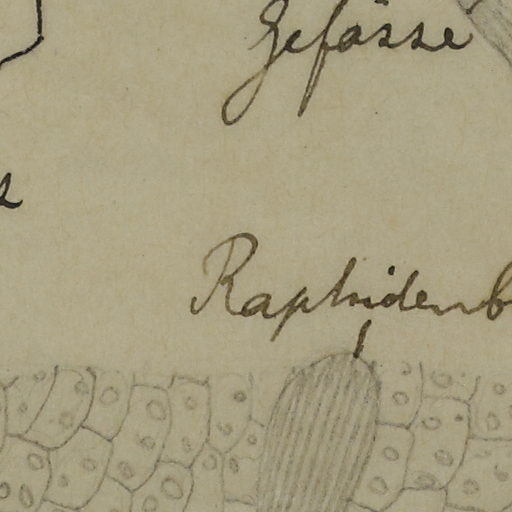 Gefässe
Raphidenb